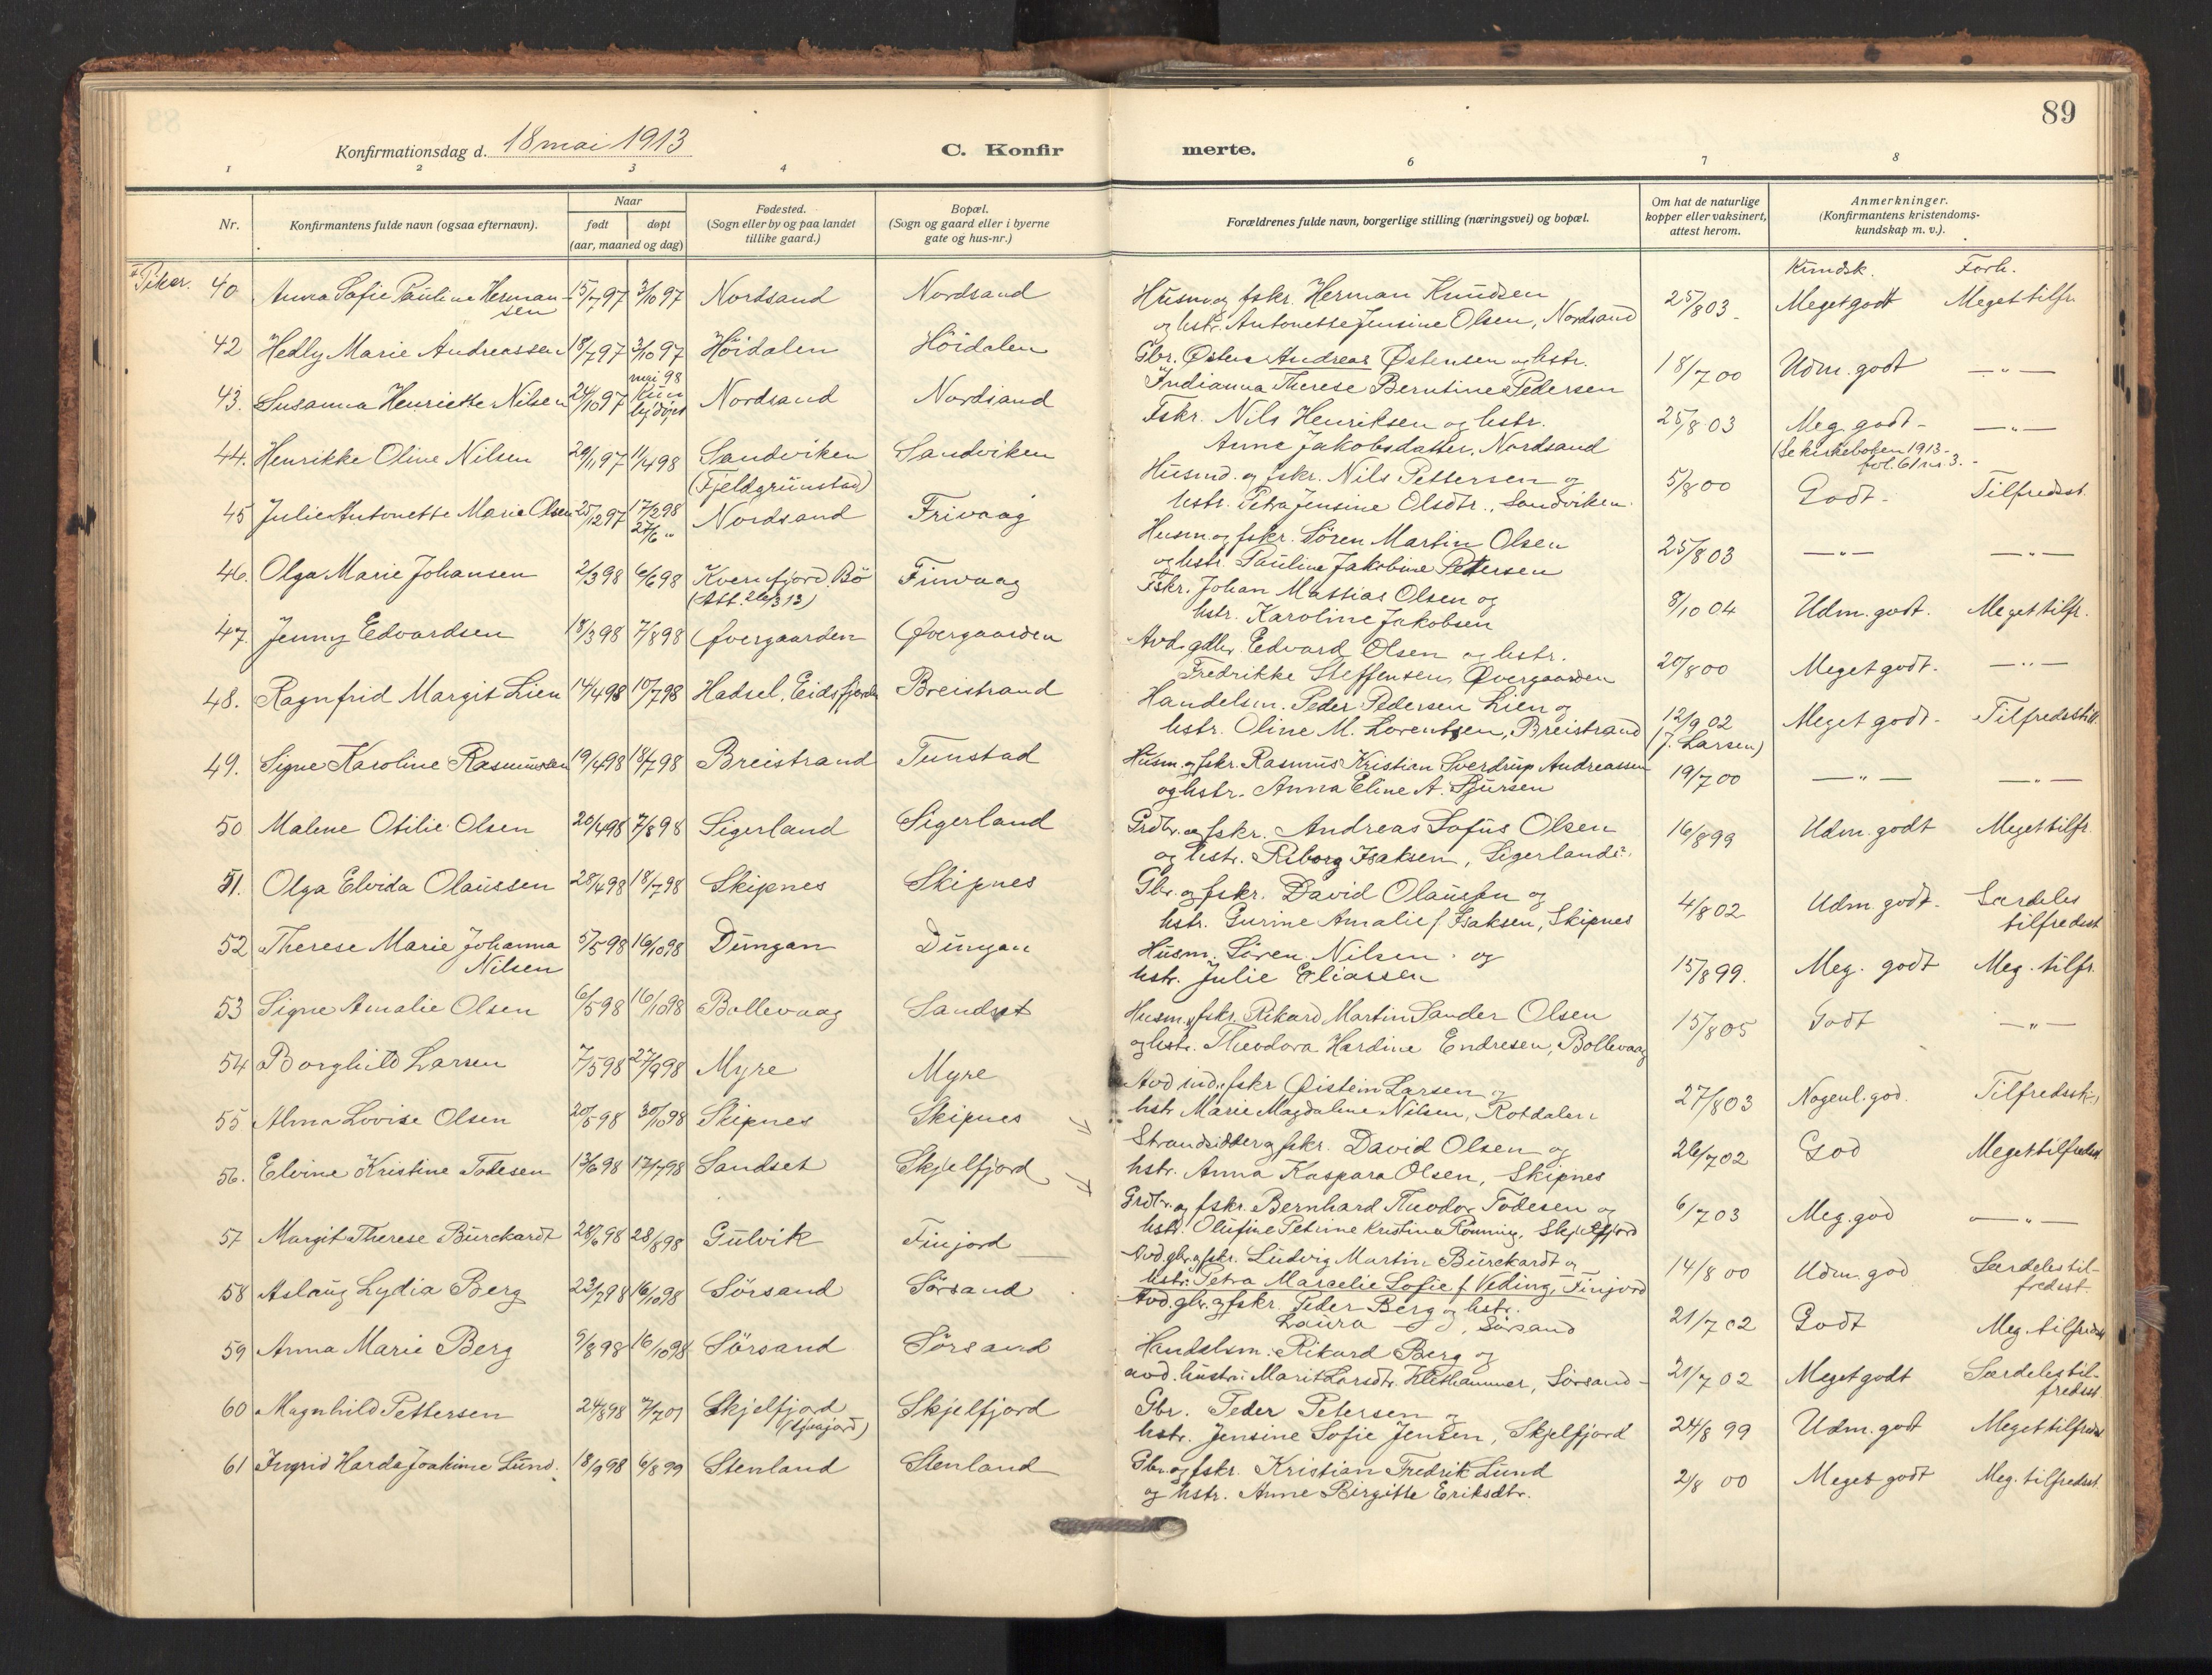 89
Konfirmationsdag d. 18 mai 1913
C. Konfirmerte.
1 2 3 4 6 7 8
Nr.
Konfirmantens fulde navn (ogsaa efternavn).
Naar
født døpt
(aar, maaned og dag)
Fødested.
(Sogn eller by og paa landet
tillike gaard.)
Bopæl.
(Sogn og gaard eller i byerne
gate og hus-nr.)
Forældrenes fulde navn, borgerlige stilling (næringsvei) og bopæl.
Om hat de naturlige
kopper eller vaksinert,
attest herom.
Anmerkninger.
(Konfirmantens kristendoms-
kundskap m. v.).
Kundsk. Forh.
Piker. 40 Anna Sofie Pauline Herman- 15/7 97 3/10 97 Nordsand Nordsand
sen
Husm. og fskr. Herman Knudsen
og hstr. Antonette Jensine Olsen, Nordsand
25/8 03 Meget godt Meget tilfr.
42 Hedly Marie Andreassen 18/7 97 3/10 97 Höidalen Höidalen
Gbr. Østen Andreas Østensen og hstr.
Indianna Therese Berntine Pedersen
18/7 00 Udm. godt — " —
43. Susanna Henriette Nilsen 24/10 97 mai 98 Nordsand Nordsand
Fskr. Nils Henriksen og hstr.
Anne Jakobsdatter, Nordsand
25/8 03 Meg. godt — " —
(Se kirkeboken 1913-
fol. 61 nr. 3.
44. Henrikke Oline Nilsen 20/11 97 11/4 98 Sandviken Sandviken
(Fjeldgrunstad)
Husmd. og fskr. Nils Pettersen og
hstr. Petra Jensine Olsdtr., Sandviken.
5/8 00 Godt Tilfredsst.
45 Julie Antonette Marie Olsen 25/12 97 17/2 98 Nordsand Frivaag
27/6 "
Husm. og fskr. Sören Martin Olsen
og hstr. Pauline Jakobine Petersen
25/8 03 — " — — " —
46. Olga Marie Johansen 2/3 98 6/6 98 Kvernfjord, Bö Finvaag
(Att. 26/3 13)
Fskr. Johan Mattias Olsen og
hstr. Karoline Jakobsen
8/10 04 Udm. godt. Meget tilfr.
47. Jenny Edvardsen 18/3 98 7/8 98 Øvergaarden Øvergaarden
Avd. gdbr. Edvard Olsen og hstr.
Fredrikke Steffensen, Øvergaarden
20/8 00 Meget godt. — " —
48. Ragnfrid Margit Lien 14/4 98 10/7 98 Hadsel, Eidsfjorden Breistrand
Handelsm. Peder Pedersen Lien og
hstr. Oline M. Lorentsen, Breistrand
12/9 02 Meget godt. Tilfredsstill.
(J. Larsen)
49. Signe Karoline Rasmussen 19/4 98 18/7 98 Breistrand Tunstad
Husm. og fskr. Rasmus Kristian Sverdrup Andreassen
og hstr. Anna Eline A. Sjursen
19/7 00 — " — — " —
50 Malene Otilie Olsen 20/4 98 7/8 98 Sigerland Sigerland
Grdbr. og fskr. Andreas Sofus Olsen
og hstr. Riborg Isaksen, Sigerland.
16/8 99 Udm. godt Meget tilfr.
51. Olga Elvida Olaussen 28/4 98 18/7 98 Skipnes Skipnes
Gbr. og fskr. David Olaussen og
hstr. Gurine Amalie f. Isaksen, Skipnes
4/8 02 Udm. godt. Særdeles
tilfredsst
52 Therese Marie Johanna 5/5 98 16/10 98 Dungan Dungan
Nilsen
Husm. Sören Nilsen og
hstr. Julie Eliassen
15/8 99. Meg. godt Meg. tilfr.
53 Signe Amalie Olsen 6/5 98 16/10 98 Bollevaag Sandset
Husm. og fskr. Rikard Martin Sander Olsen
og hstr. Theodora Hardine Endresen, Bollevaag
15/8 05 Godt — " —
54 Borghild Larsen 7/5 98 27/9 98 Myre Myre
Avd ind. fskr Øistein Larsen og
hstr Marie Magdalene Nilsen, Rotdalen
27/8 03 Nogenl. god. Tilfredsst.
55 Alma Lovise Olsen 20/5 98 30/10 98 Skipnes Skipnes
Strandsidder og fskr. David Olsen og
hstr. Anna Kaspara Olsen, Skipnes
26/7 02 God Meget tilfredsst
56. Elvine Kristine Todesen 13/6 98 17/7 98 Sandset Skjelfjord
Grdbr. og fskr. Bernhard Theodor Todesen og
hstr. Olufine Petrine Kristine Rönning, Skjelfjord
6/7 03 Meg. god — " —
57 Margit Therese Burckardt 28/6 98 28/8 98 Gulvik Finjord
Avd. gbr. og fskr. Ludvig Martin Burckardt og
hstr. Petra Marcelie Sofie f. Veding, Finjord
14/8 00 Udm. god Særdeles til-
fredsst.
58 Aslaug Lydia Berg 23/7 98 16/10 98 Sörsand Sörsand
Avd. gbr. og fskr. Peder Berg og hstr.
Laura , Sörsand
21/7 02 Godt Meg tilfredsst
59 Anna Marie Berg 9/8 98 16/10 98 Sörsand Sörsand
Handelsm. Rikard Berg og
avd. hustru Marit Larsdtr. Klethammer, Sörsand
21/7 02 Meget godt Særdeles til-
fredsst.
60 Magnhild Pettersen 24/8 98 7/7 01 Skjelfjord Skjelfjord
Gbr. Peder Petersen og
hstr. Jensine Sofie Jensen, Skjelfjord
24/8 99 Udm. godt Meget tilfredsst
61 Ingrid Harda Joakime Lund. 18/9 98 6/8 99 Stenland Stenland
Gbr. og fskr. Kristian Fredrik Lund
og hstr. Anne Birgitte Eriksdtr.
2/8 00 Meget godt Meg. tilfredsst.